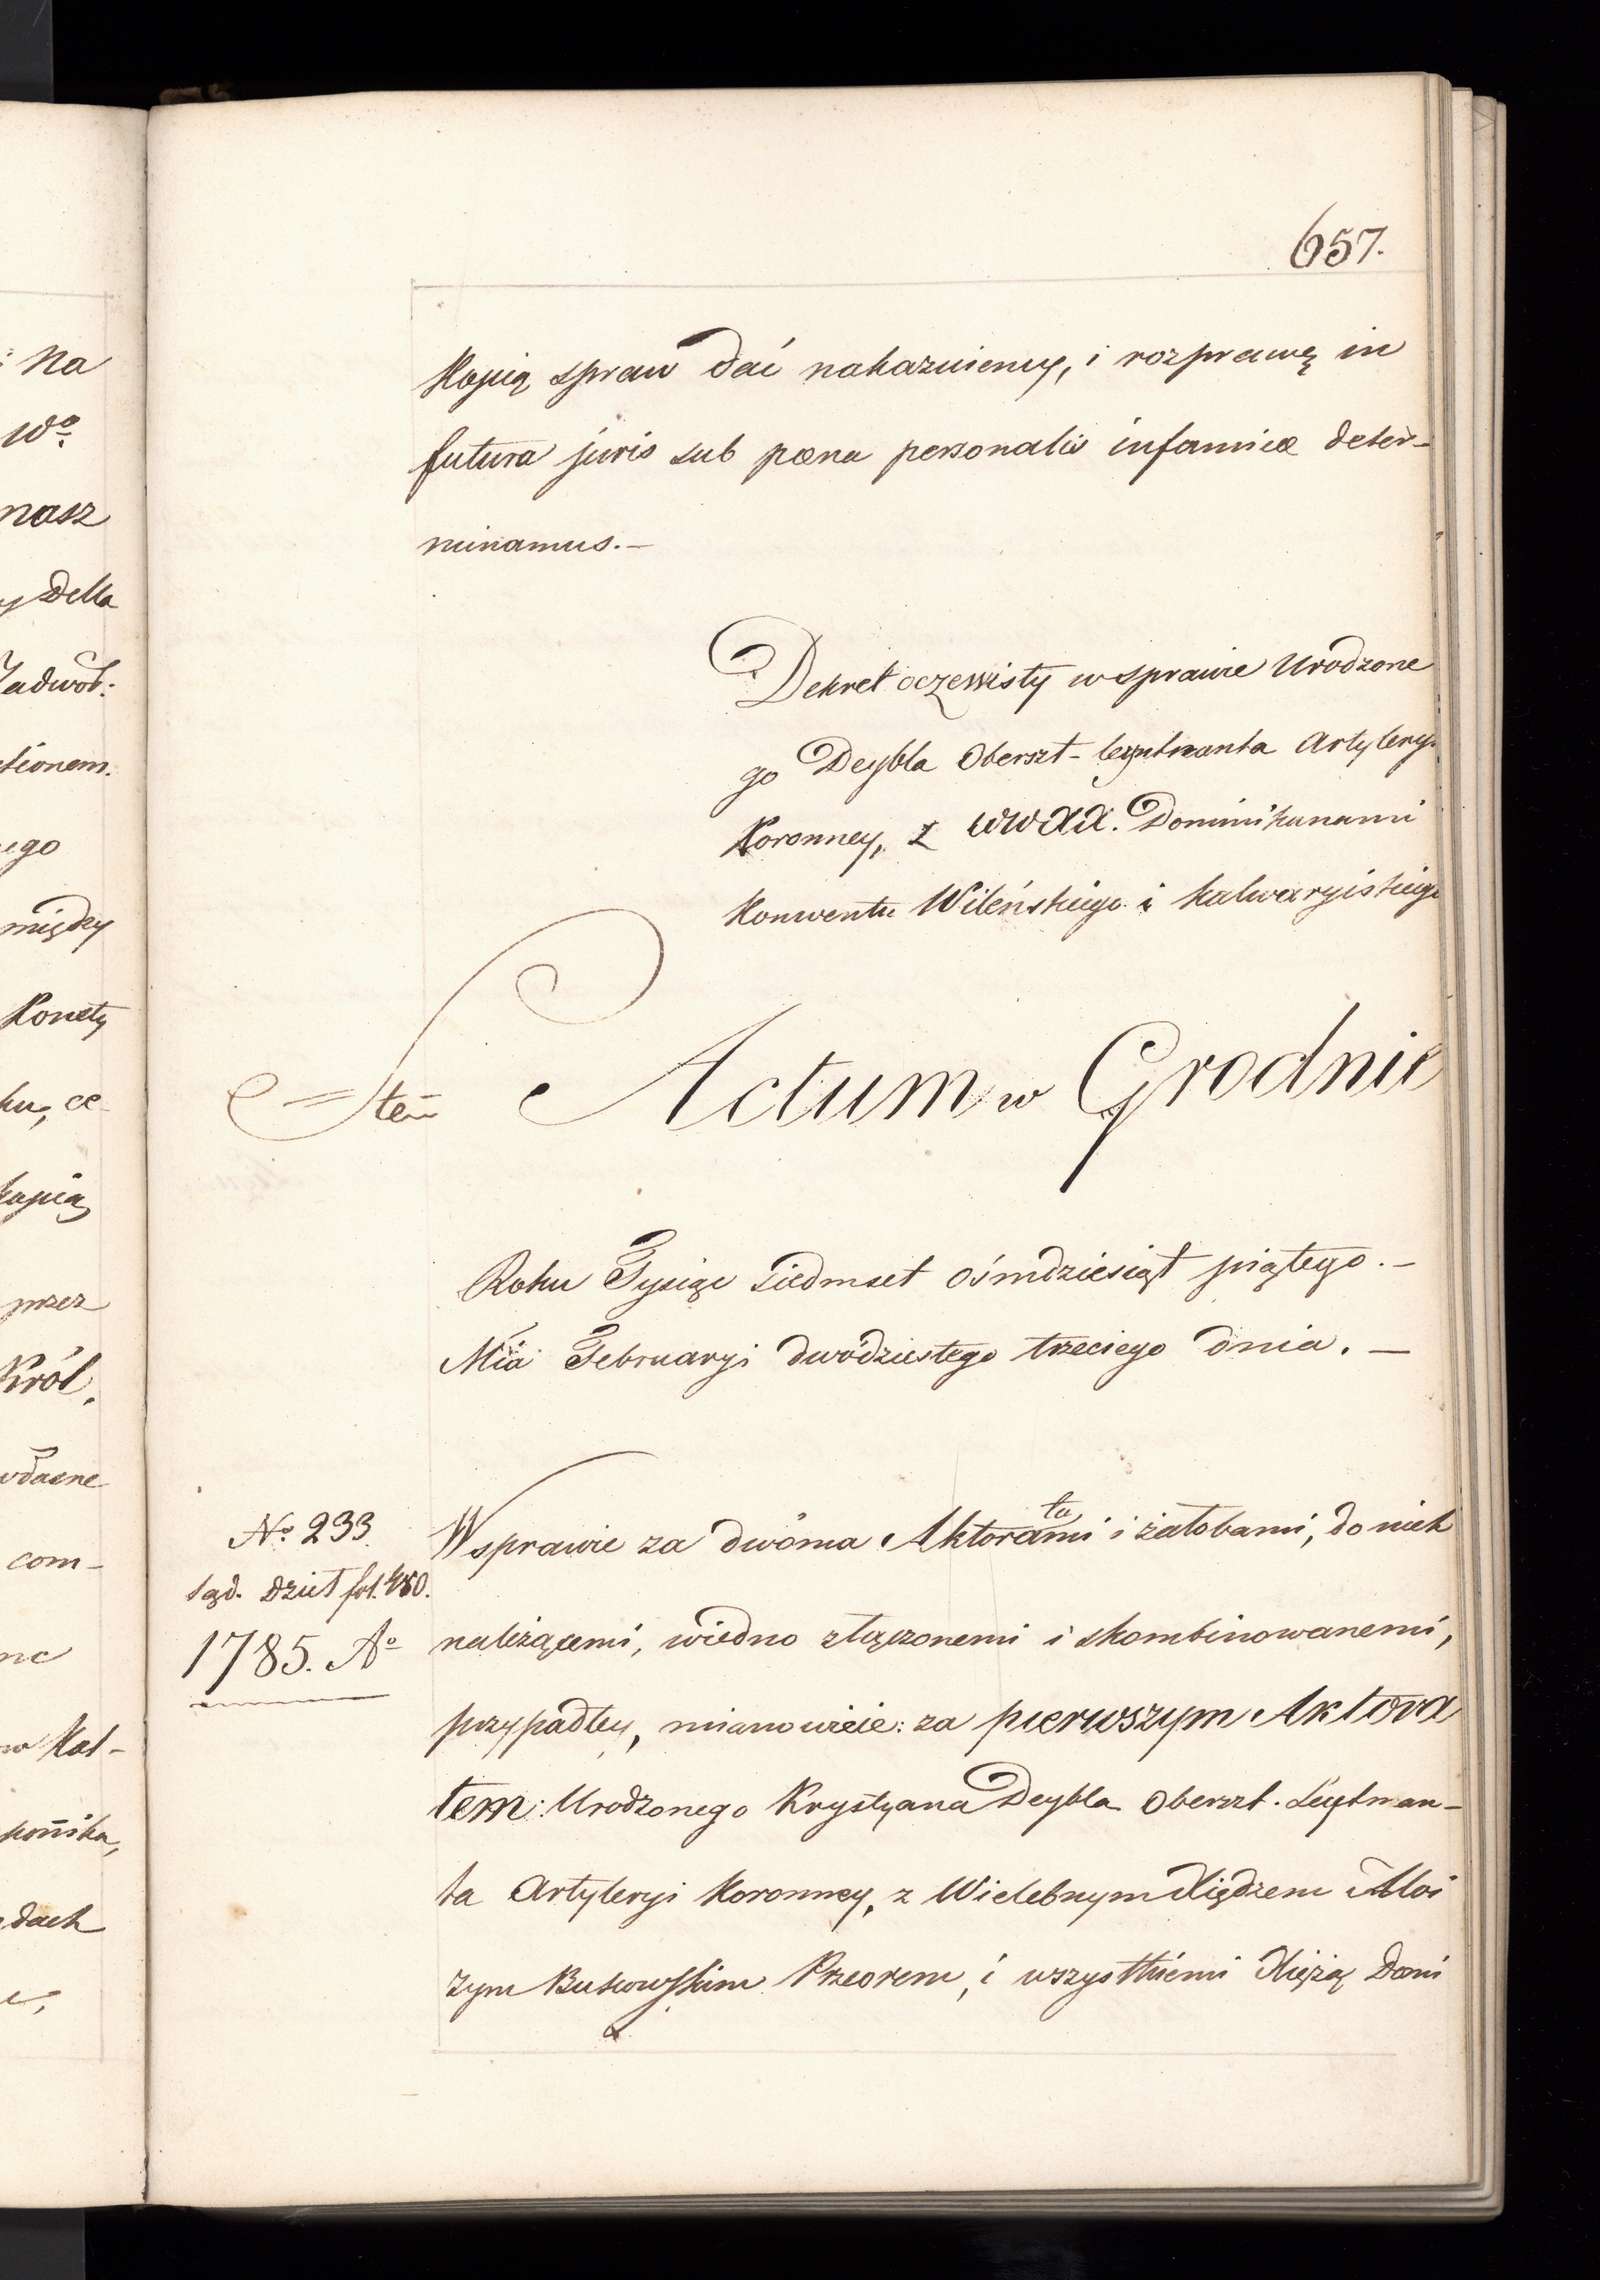 657.
Kopią spraw dać nakazuiemy, i rozprawę in
futura juris sub pœna personalis infamiæ deter-
minamus. —
Dekret oczewisty w sprawie Urodzone
go Deybla Oberszt-leytnanta Artylery:
Koronney, z WWXX. Dominikanami
Konwentu Wileńskiego i Kalwaryiskiego
Actum w Grodnie
Roku Tysiąc Siedmset Ośmdziesiąt piątego. —
Mia Februaryi dwódziestego trzeciego dnia. —
No 233.
Sąd. Dziet fol. 480.
1785. Ao
W sprawie za dwóma Aktoratami i żałobami, do nich
należącemi, wiedno złączonemi i skombinowanemi,
przypadłey, mianowicie: za pierwszym Aktora
tem: Urodzonego Krystyana Deybla Oberszt. Leytnan-
ta Artyleryi Koronney, z Wielebnym Xiędzem Aloi
zym Bukowskim Przeorem, i wszystkiemi Xiężą Domi
Na
Wo
nasz
Della
ctionem.
ego
między
Konety
kopią
przez
Król.
com-
w Kal-
dach